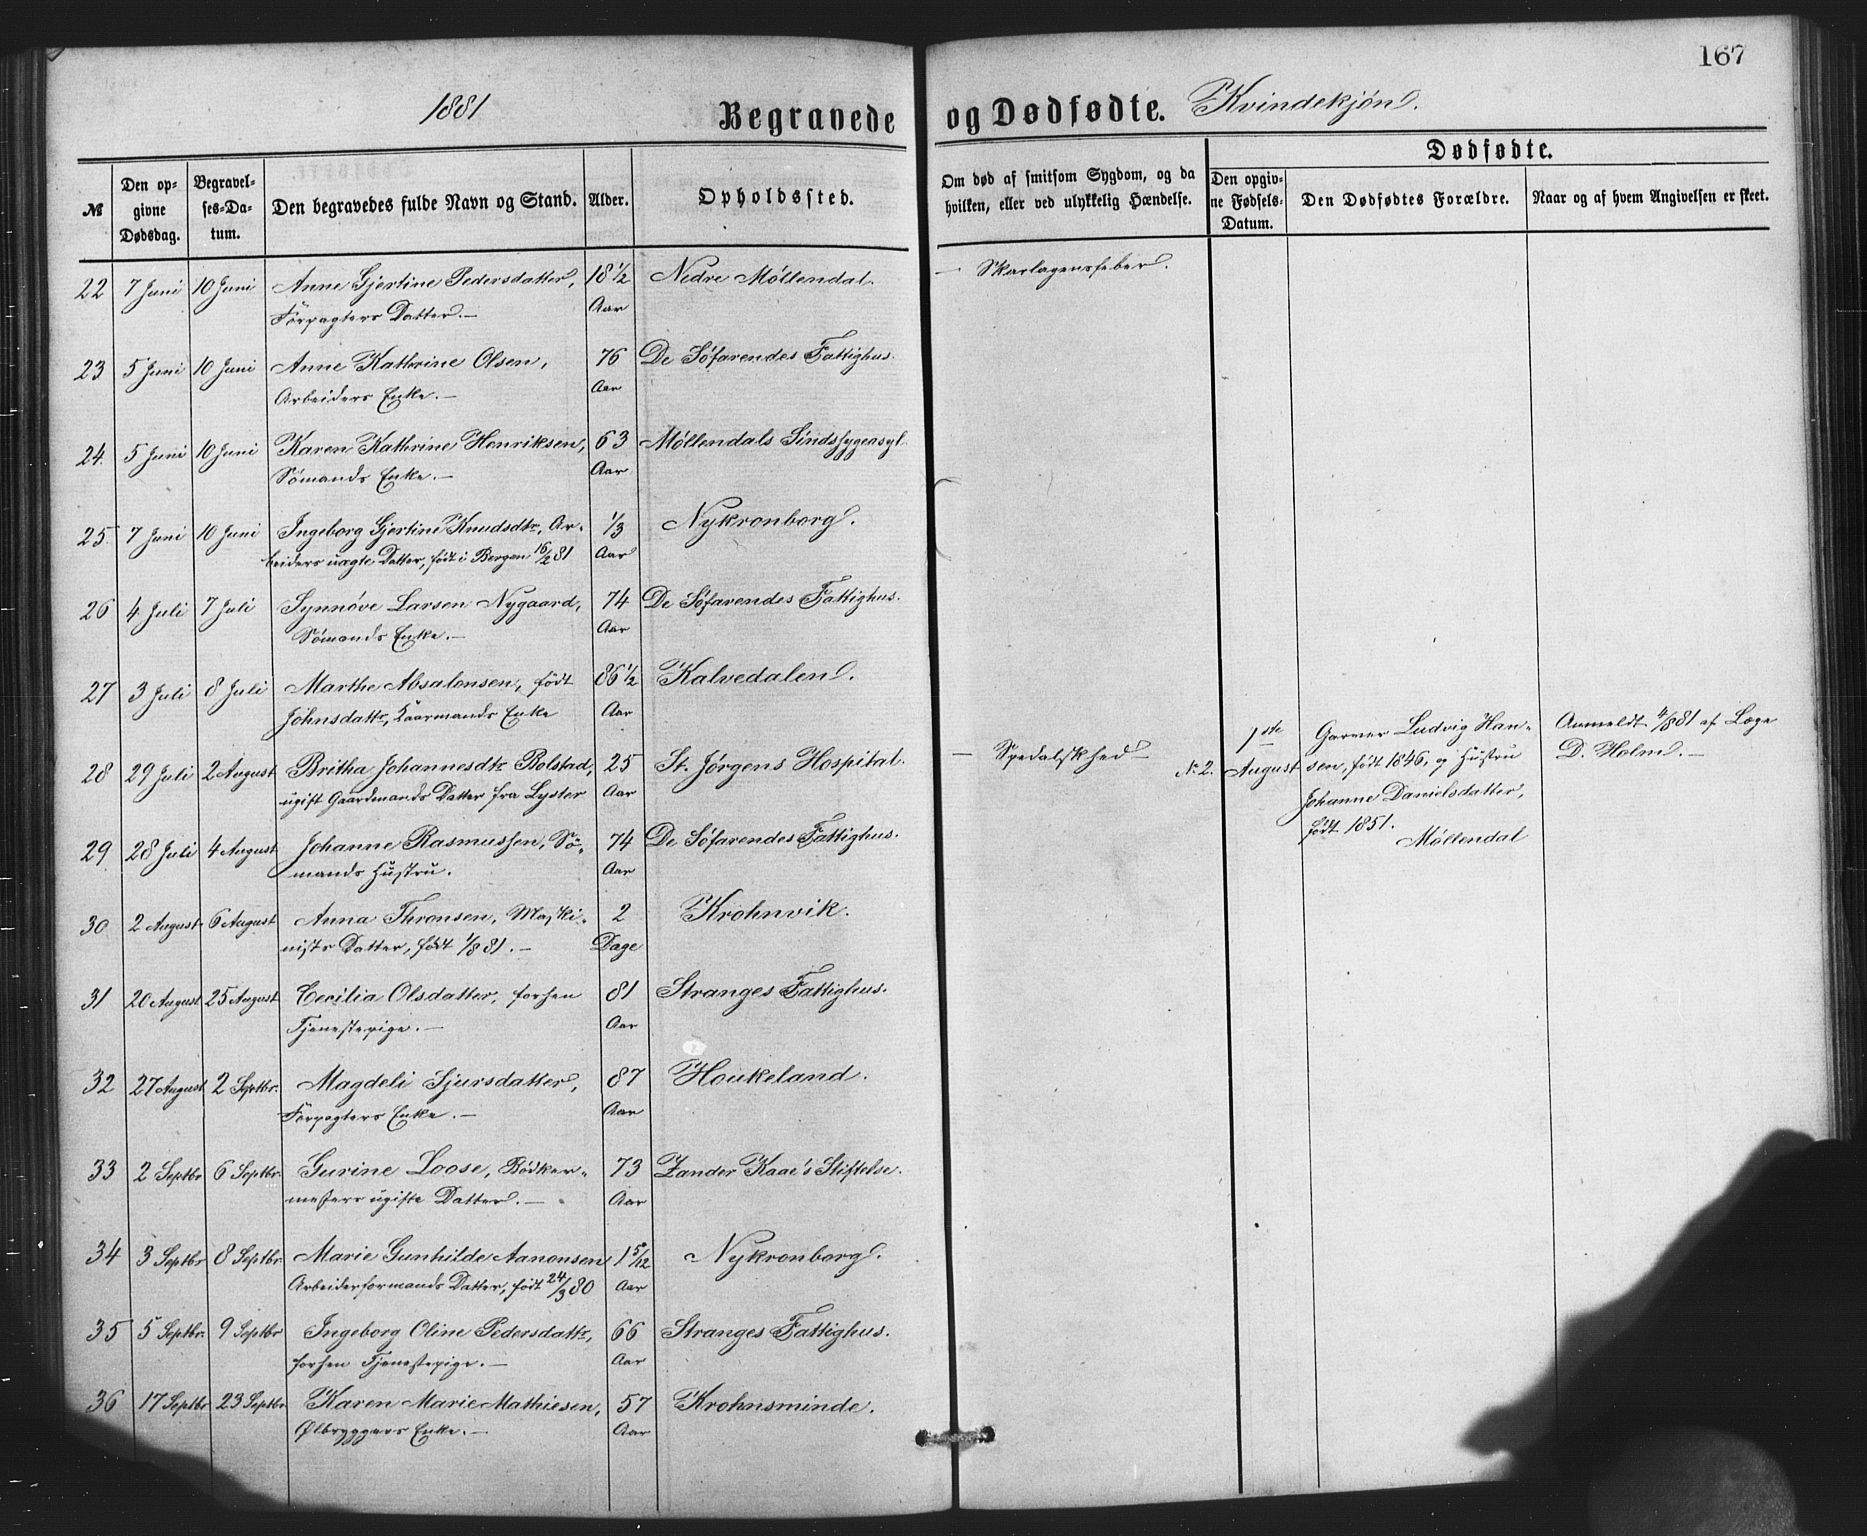 167
1881 Begravede og Dødfødte. Kvindekjön.
№ | Den opgivne Dødsdag. | Begravelses-Datum. | Den begravedes fulde Navn og Stand. | Alder. | Opholdssted. | Om død af smitsom Sygdom, og da hvilken, eller ved ulykkelig Hændelse. | Dødfødte. Den opgivne Fødsels-Datum. | Den Dødfødtes Forældre. | Naar og af hvem Angivelsen er skeet.
22 7 Juni 10 Juni Anne Gjertine Pedersdatter, 18 1/2 Nedre Möllendal. — Skarlagensfeber.
Forpagters Datter.— Aar
23 5 Juni 10 Juni Anne Kathrine Olsen, 76 De Söfarendes Fattighus.
Arbeiders Enke.— Aar
24. 5 Juni 10 Juni Karen Kathrine Henriksen, 63 Möllendals Sindssygeasyl
Sömands Enke.— Aar
25 7 Juni 10 Juni Ingeborg Gjertine Knudsdtr, Ar- 1/3 Nykronborg.
beiders uægte Datter, födt i Bergen 16/2 81 Aar
26 4 Juli 7 Juli Synnöve Larsen Nygaard, 74 De Söfarendes Fattighus.
Sömands Enke.— Aar
27 3 Juli 8 Juli Marthe Absalonsen, födt 86 1/2 Kalvedalen.
Johnsdattr, Kaarmands Enke Aar
28 29 Juli 2 August Britha Johannesdtr Bolstad, 25 St. Jörgens Hospital. — Spedalskhed—
ugift Gaardmands Datter fra Lyster Aar
No 2. 1ste August Garver Ludvig Han- Anmeldt 4/8 81 af Læge
sen, födt 1846, og Hustru D. Holm.—
Johanne Danielsdatter,
födt 1851.
Möllendal
29 28 Juli 4 August Johanne Rasmussen, Sö- 74 De Söfarendes Fattighus.
mands Hustru. Aar
30 2 August 6 August Anna Thronsen, Maski- 2 Krohnvik.
nists Datter, födt 1/8 81.— Dage
31 20 August 25 August Cecilia Olsdatter, forhen 81 Stranges Fattighus.
Tjenestepige.— Aar
32 27 August 2 Septbr. Magdeli Sjursdatter, 87 Houkeland.
Forpagters Enke.— Aar
33 2 Septbr 6 Septbr. Gurine Loose, Bödker- 73 Zander Kaae's Stiftelse.
mesters ugifte Datter.— Aar
34 3 Septbr 8 Septbr. Marie Gunhilde Aanonsen 1 5/12 Nykronborg.
Arbeiderformands Datter, födt 24/3 80 Aar
35 5 Septbr. 9 Septbr Ingeborg Oline Pedersdattr, 66 Stranges Fattighus.
forhen Tjenestepige.— Aar
36 17 Septbr 23 Septbr. Karen Marie Mathiesen, 57 Krohnsminde.
Ølbryggers Enke.— Aar